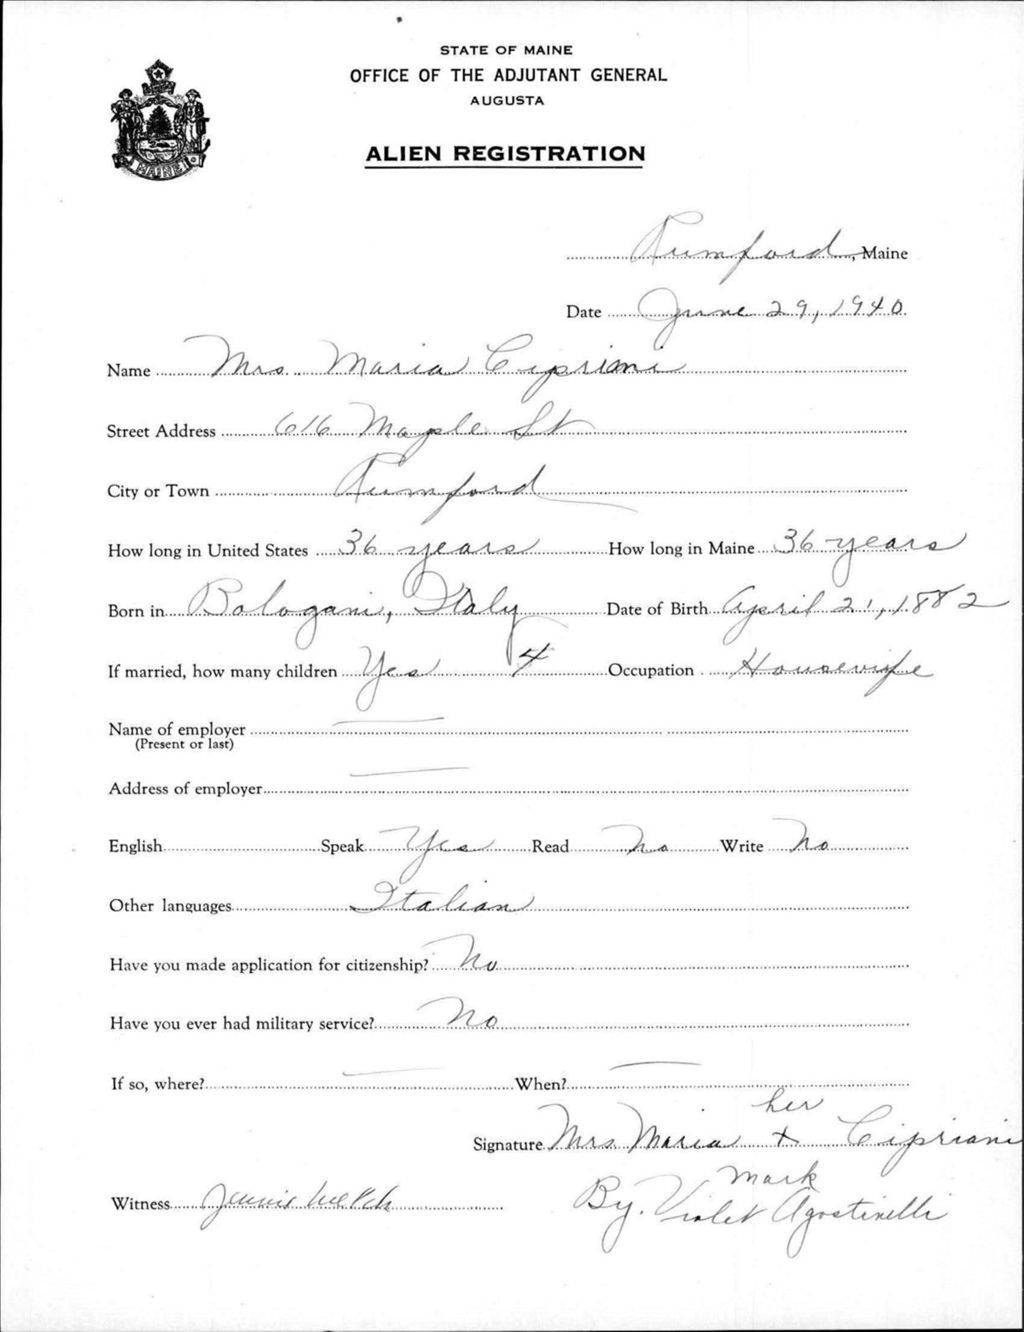 STATE OF MAINE
OFFICE OF THE ADJUTANT GENERAL
AUGUSTA
ALIEN REGISTRATION
MAINE
Rumford, Maine
Date June 29, 1940
Name Mrs. Maria Cipriani
Street Address 616 Maple St
City or Town Rumford
How long in United States 36 years How long in Maine 36 years
Born in Bologani, Italy Date of Birth April 21, 1882
If married, how many children Yes 4 Occupation Housewife
Name of employer
(Present or last)
Address of employer
English Speak Yes Read No Write No
Other languages Italian
Have you made application for citizenship? No
Have you ever had military service? No
If so, where? When?
her
Signature Mrs Maria x Cipriani
mark
Witness Jennie Welch By. Violet Agostinelli